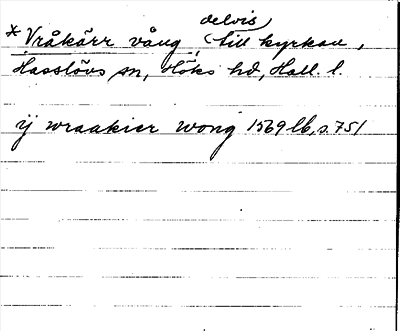 delvis
*Vråkärr vång, (till kyrkan,
Hasslövs sn, Höks hd, Hall. l.
ÿ wraakier wong 1569 lb, s. 751